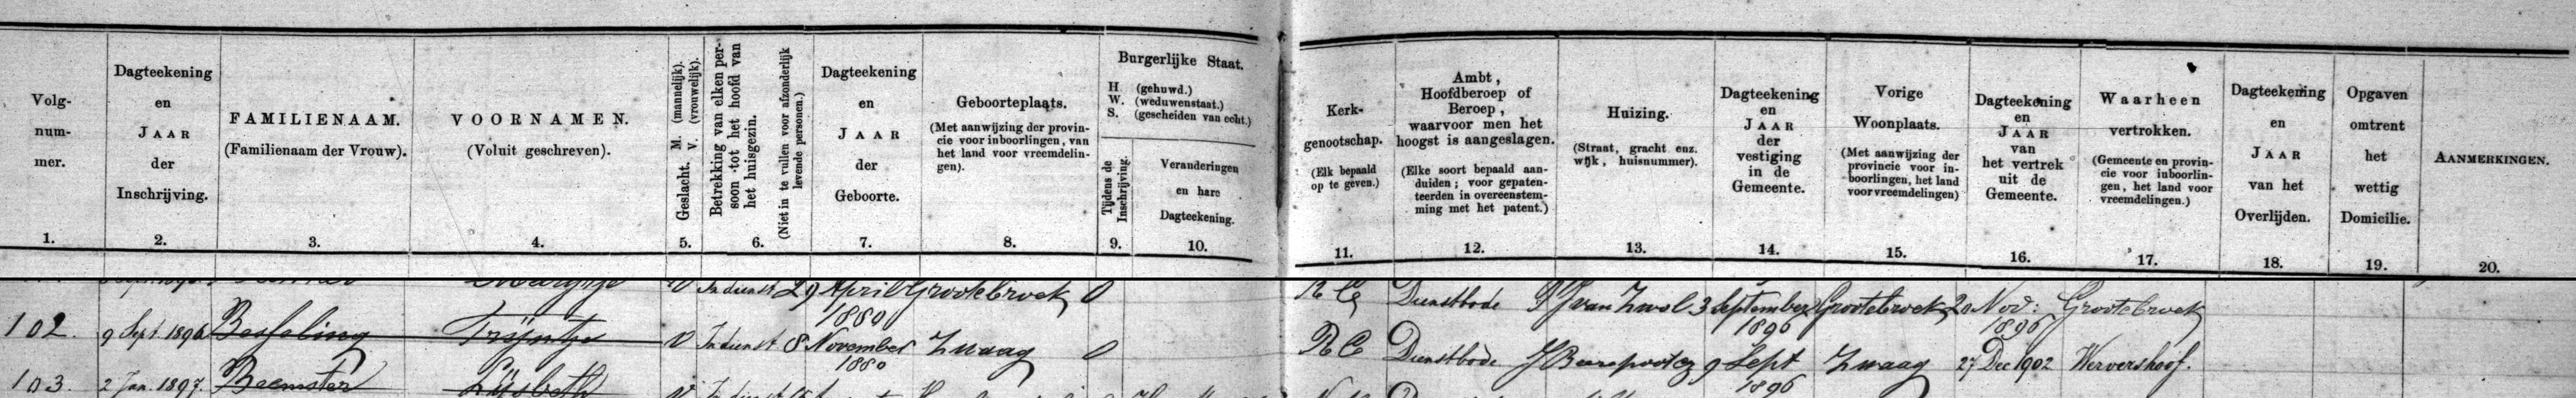 Volg-
num-
mer.
1.
Dagteekening
en
JAAR
der
Inschrijving.
2.
FAMILIENAAM.
(Familienaam der Vrouw).
3.
VOORNAMEN.
(Voluit geschreven).
4.
Geslacht. M. (mannelijk).
V. (vrouwelijk).
5.
Betrekking van elken per-
soon tot het hoofd van
het huisgezin.
(Niet in te vullen voor afzonderlijk
levende personen.)
6.
Dagteekening
en
JAAR
der
Geboorte.
7.
Geboorteplaats.
(Met aanwijzing der provin-
cie voor inboorlingen, van
het land voor vreemdelin-
gen).
8.
Burgerlijke Staat.
H (gehuwd.)
W. (weduwenstaat.)
S. (gescheiden van echt.)
Tijdens de
Inschrijving.
9.
Veranderingen
en hare
Dagteekening.
10.
Kerk-
genootschap.
(Elk bepaald
op te geven.)
11.
Ambt,
Hoofdberoep of
Beroep,
waarvoor men het
hoogst is aangeslagen.
(Elke soort bepaald aan-
duiden; voor gepaten-
teerden in overeenstem-
ming met het patent.)
12.
Huizing.
(Straat, gracht enz.
wijk, huisnummer).
13.
Dagteekening
en
JAAR
der
vestiging
in de
Gemeente.
14.
Vorige
Woonplaats.
(Met aanwijzing der
provincie voor in-
boorlingen, het land
voor vreemdelingen)
15.
Dagteekening
en
JAAR
van
het vertrek
uit de
Gemeente.
16.
Waarheen
vertrokken.
(Gemeente en provin-
cie voor inboorlin-
gen, het land voor
vreemdelingen.)
17.
Dagteekening
en
JAAR
van het
Overlijden.
18.
Opgaven
omtrent
het
wettig
Domicilie.
19.
AANMERKINGEN.
20.
V In dienst 29 April Grootebroek O R C Dienstbode van Zwol 3 September Grootebroek 2 Nov: Grootebroek
1880 1896 1896
102. 9 Sept. 1896 Besseling Trijntje V In dienst 8 November Zwaag O R C Dienstbode 9 Sept Zwaag 27 Dec 1902 Wervershoof.
1880 1896
103. 2 Jan. 1897. Beemster Lijsbeth V In dienst